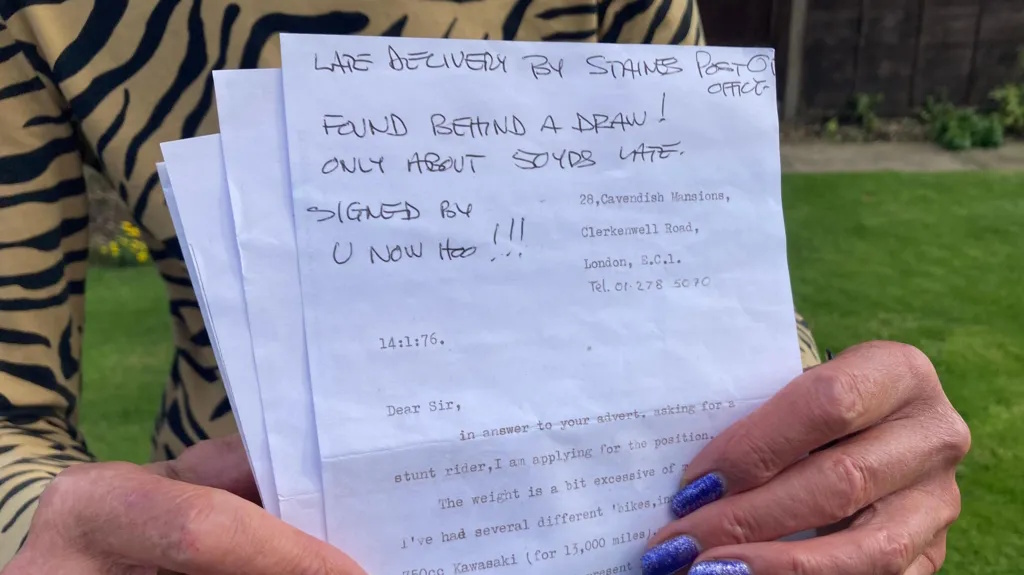 LATE DELIVERY BY STAINES POST
OFFICE
FOUND BEHIND A DRAW!
ONLY ABOUT 50YDS LATE.
SIGNED BY
U NOW HOO !!!
28,Cavendish Mansions,
Clerkenwell Road,
London, E.C.1.
Tel. 01-278 5070
14:1:76.
Dear Sir,
in answer to your advert. asking for a
stunt rider,I am applying for the position.
The weight is a bit excessive of
I've had several different 'bikes,
750cc Kawasaki (for 13,000 miles)
present